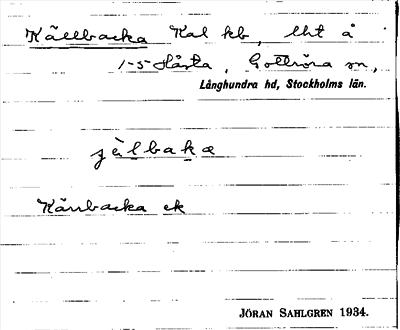 Källbacka Kal kb, lht å
1-5 Hårsta, Gottröra sn,
Långhundra hd, Stockholms län.
jälbaka
Källbacka ek
JÖRAN SAHLGREN 1934.